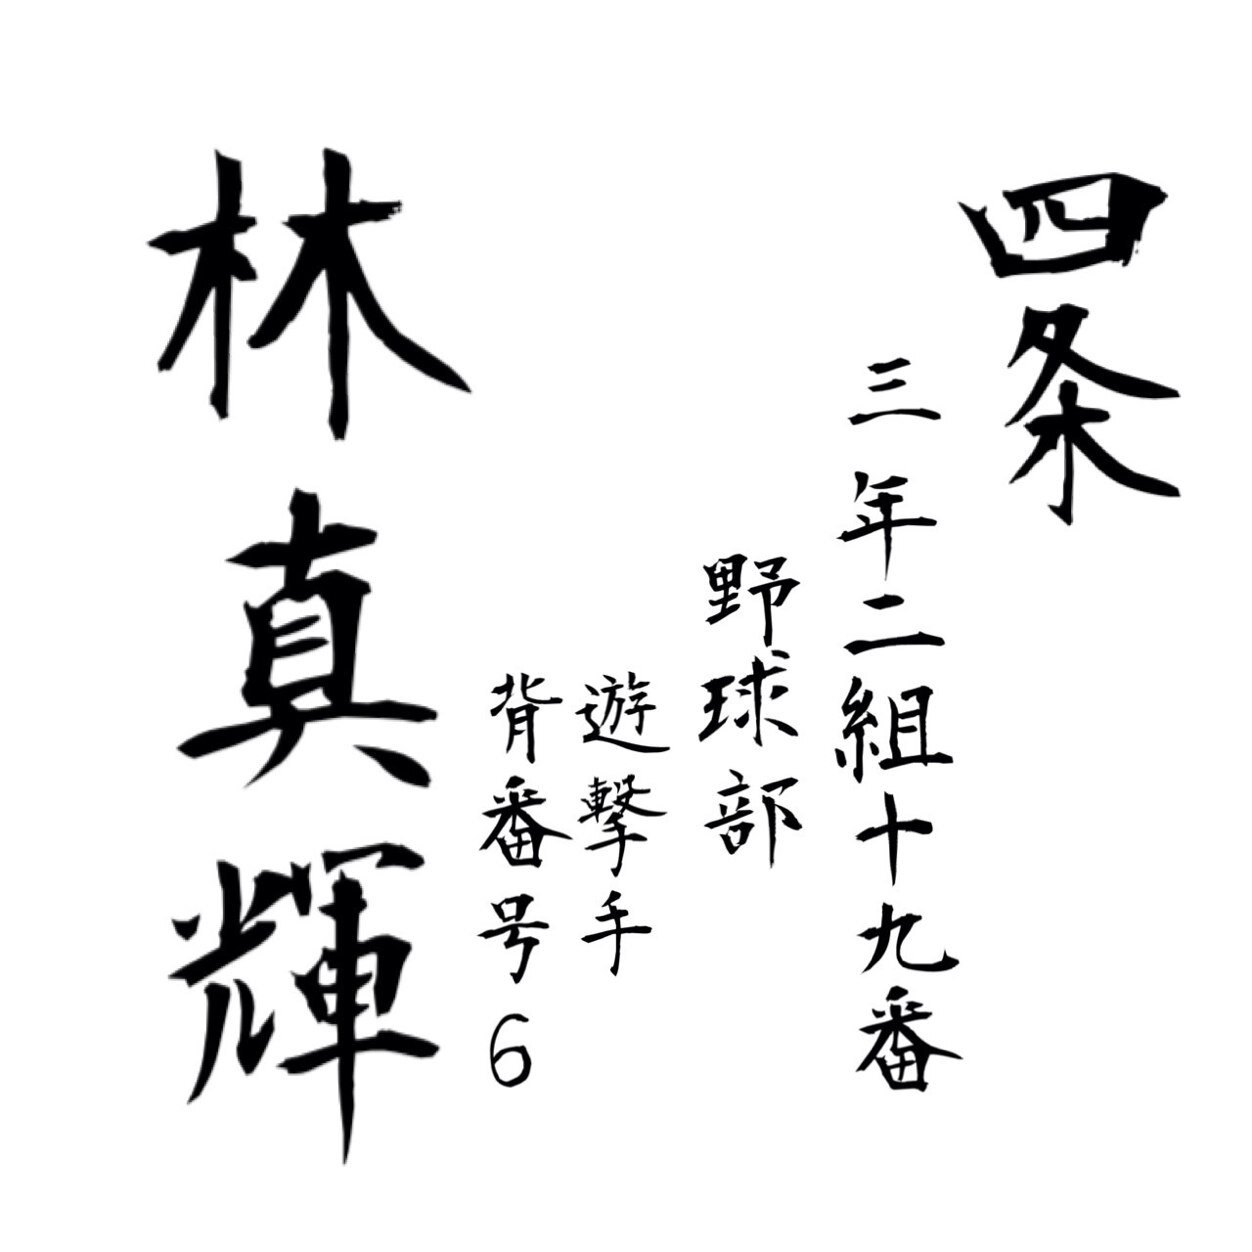 四条
三年二組十九番
野球部
遊撃手
背番号6
林真輝